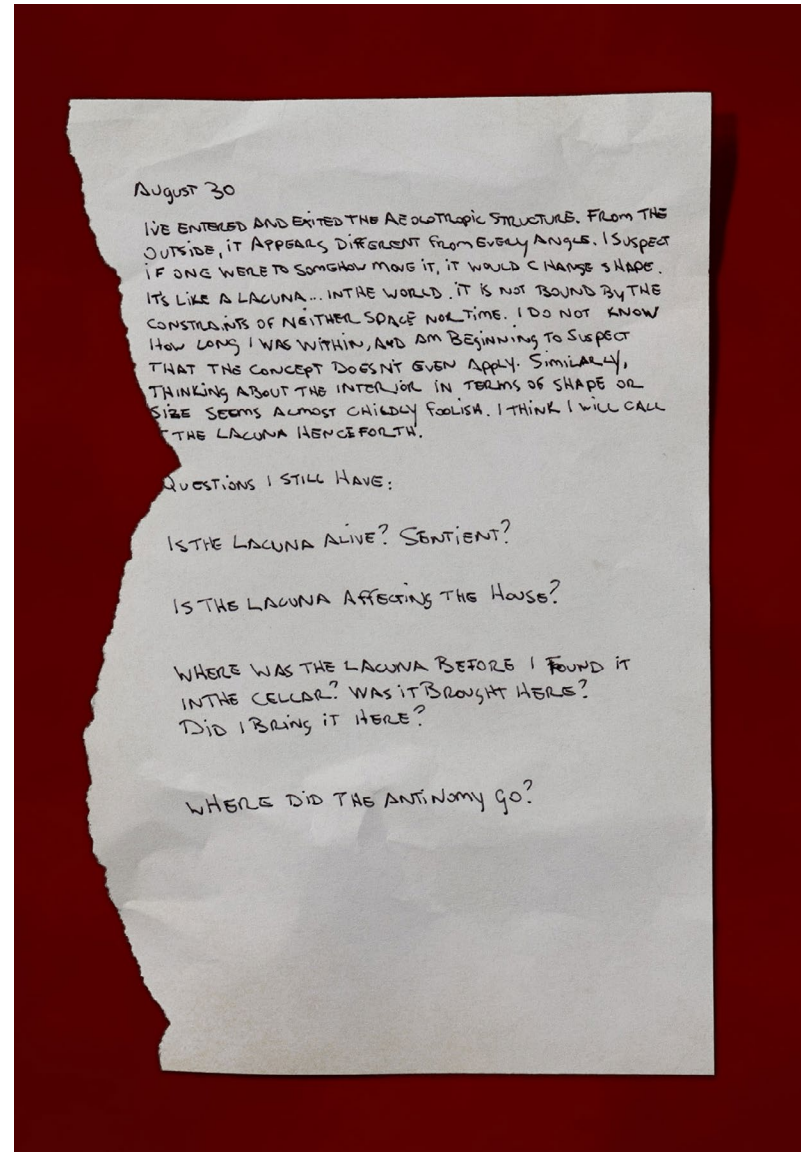 August 30
I've entered and exited the Aeolotropic structure. From the
outside, it appears different from every angle. I suspect
if one were to somehow move it, it would change shape.
It's like a lacuna... in the world. It is not bound by the
constraints of neither space nor time. I do not know
how long I was within, and am beginning to suspect
that the concept doesn't even apply. Similarly,
thinking about the interior in terms of shape or
size seems almost childly foolish. I think I will call
the Lacuna henceforth.
Questions I still have:
Is the Lacuna alive? Sentient?
Is the Lacuna affecting the House?
Where was the Lacuna before I found it
in the cellar? Was it brought here?
Did I bring it here?
Where did the Antinomy go?